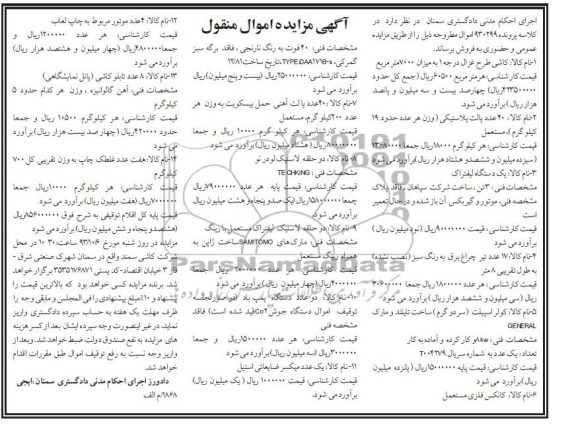 آگهی مزایده اموال منقول
اجرای احکام مدنی دادگستری سمنان در نظر دارد در
کلاسه پرونده ۹۳۰۲۹۹ اموال مطروحه ذیل را از طریق مزایده
عمومی و حضوری به فروش برساند.
۱-نام کالا: کاشی طرح غزال درجه ۱ به میزان ۷۰۰۰متر مربع
قیمت کارشناسی: هر متر مربع ۶۰۵۰۰ ریال (جمع کل حدود
۴۲۳۵۰۰۰۰۰ریال) چهارصد بیست و سه میلیون و پانصد
هزار ریال) برآورد می شود.
۲-نام کالا: ۴۰عدد پالت پلاستیکی ( وزن هر عدد حدود ۱۹
کیلو گرم)، مستعمل
قیمت کارشناسی: هر کیلو گرم ۱۸۰۰۰ریال جمعا ۱۳۶۸۰۰۰۰
(سیزده میلیون و ششصد و هشتاد هزار ریال)برآورد می شود
۳-نام کالا: یک دستگاه لیفتراک
مشخصات فنی: ۳تن ، ساخت شرکت سپاهان ، فاقد پلاک
مشخصه فنی ، موتور و گیربکس آن باز شده و درحال تعمیر
است
قیمت کارشناسی : قیمت ۹۰۰۰۰۰۰۰ریال (نود میلیون ریال )
برآورد می شود
۴-نام کالا: ۱۷ عدد تیر چراغ برق به رنگ سبز (نصب نشده)
به طول تقریبی ۸متر
قیمت کارشناسی: هر عدد ۱۸۰۰۰۰۰ ریال جمعا ۳۰۶۰۰۰۰۰
ریال (سی میلیون و ششصد هزار ریال ) برآورد می شود
۵-نام کالا: کولر اسپیلت ( سردو گرم ) ساخت تایلند و مارک
GENERAL
مشخصات فنی : کار کرده و آماده به کار
تعداد : یک عدد به شماره سریال ۲۰۰۴۲۷۹
قیمت کارشناسی: قیمت پایه ۱۵۰۰۰۰۰۰ ریال ( پانزده میلیون
ریال) برآورد می شود
۶-نام کالا: کانکس فلزی مستعمل
مشخصات فنی: ۴۰ فوت به رنگ نارنجی ، فاقد برگه سبز
گمرکی،
قیمت کارشناسی: ۲۵۰۰۰۰۰۰ریال (بیست و پنج میلیون)ریال
برآورد می شود
۷-نام کالا: ۴۰عدد پا لت آهنی حمل بیسکویت به وزن هر
عدد ۲۰۰کیلو گرم، مستعمل
قیمت کارشناسی: هر کیلو گرم ۱۰۰۰۰ ریال و جمعا
۸۰۰۰۰۰۰۰ریال ( هشتاد میلیون ریال) برآورد می شود
۸-نام کالا: دو حلقه لاستیک لودر نو
مشخصات فنی : TECHKING
قیمت کارشناسی: قیمت پایه هر عدد ۷۹۰۰۰۰۰۰ریال
جمعا ۱۵۸۰۰۰۰۰۰ریال (یک صدو پنجاه و هشت میلیون ریال
برآورد می شود
۹-نام کالا: دو حلقه لاستیک لیفتراک مستعمل با رینگ
مشخصات فنی: مارک های SAMITOMO ساخت ژاپن به
همراه رینگ مستعمل
قیمت کارشناسی: هر عدد ۲۰۰۰۰۰۰ ریال جمعا
۴۰۰۰۰۰۰ ریال (چهار میلیون ریال ) برآورد می شود
۱۰-نام کالا: دو عدد دستگاه پمپ باد (در صورتجلسه
توقیف اموال دستگاه جوش CO2 قید شده است) فاقد
مشخصه فنی
قیمت کارشناسی: هر عدد ۱۵۰۰۰۰۰ریال و جمعا
۳۰۰۰۰۰۰ریال (سه میلیون ریال) برآورد می شود
۱۱-نام کالا: یک عدد میکسر ضایعاتی استیل
قیمت کارشناسی: قیمت ۱۰۰۰۰۰۰ ریال ( یک میلیون ریال)
برآورد می شود.
۱۲-نام کالا: ۴عدد موتور مربوط به چاپ لعاب
قیمت کارشناسی: هر عدد ۱۲۰۰۰۰۰ریال و
جمعا ۴۸۰۰۰۰۰ریال (چهار میلیون و هشتصد هزار ریال)
برآورد می شود
۱۳-نام کالا: ۸ عدد تابلو کاشی (پانل نمایشگاهی)
مشخصات فنی: آهن گالوانیزه ، وزن هر کدام حدود ۵
کیلوگرم
قیمت کارشناسی: هر کیلوگرم ۱۰۵۰۰ ریال و جمعا
حدود ۴۲۰۰۰۰ ریال ( چهار صد بیست هزار ریال) برآورد
می شود
۱۴-نام کالا: هفت عدد غلطک چاپ به وزن تقریبی کل ۷۰۰
کیلوگرم
قیمت کارشناسی: هر کیلوگرم ۱۰۰۰۰ریال جمعا
۷۰۰۰۰۰۰ریال (هفت میلیون ریال) برآورد می شود.
قیمت پایه کل اقلام توقیفی به شرح فوق ۸۵۶۰۰۰۰۰۰ریال
(هشتصدو پنجاه و شش میلیون ریال) برآورد می شود
مزایده در روز شنبه مورخ ۹۳/۱۰/۶ ساعت ۱۰:۳۰ در محل
شرکت کاشی سمند واقع در سمنان شهرک صنعتی شرق -
فاز ۳ خیابان اقتصاد- کد پستی ۳۵۳۵۱۷۶۸۷۱ برگزار خواهد
شد. برنده مزایده کسی خواهد بود که بالاترین قیمت را
پیشنهاد و ۱۰٪مبلغ پیشنهادی را فی المجلس و مابقی وجه را
ظرف مهلت یک هفته به حساب سپرده دادگستری واریز
نماید. در غیر اینصورت وجه سپرده ایشان بعد از کسر هزینه
های مزایده به نفع صندوق دولت ضبط خواهد شد. وبعد از
واریز وجه نسبت به رفع توقیف اموال طبق مقررات اقدام
خواهد شد.
دادورز اجرای احکام مدنی دادگستری سمنان، ایجی
۱۸۶۸/م الف
ParsNamadData